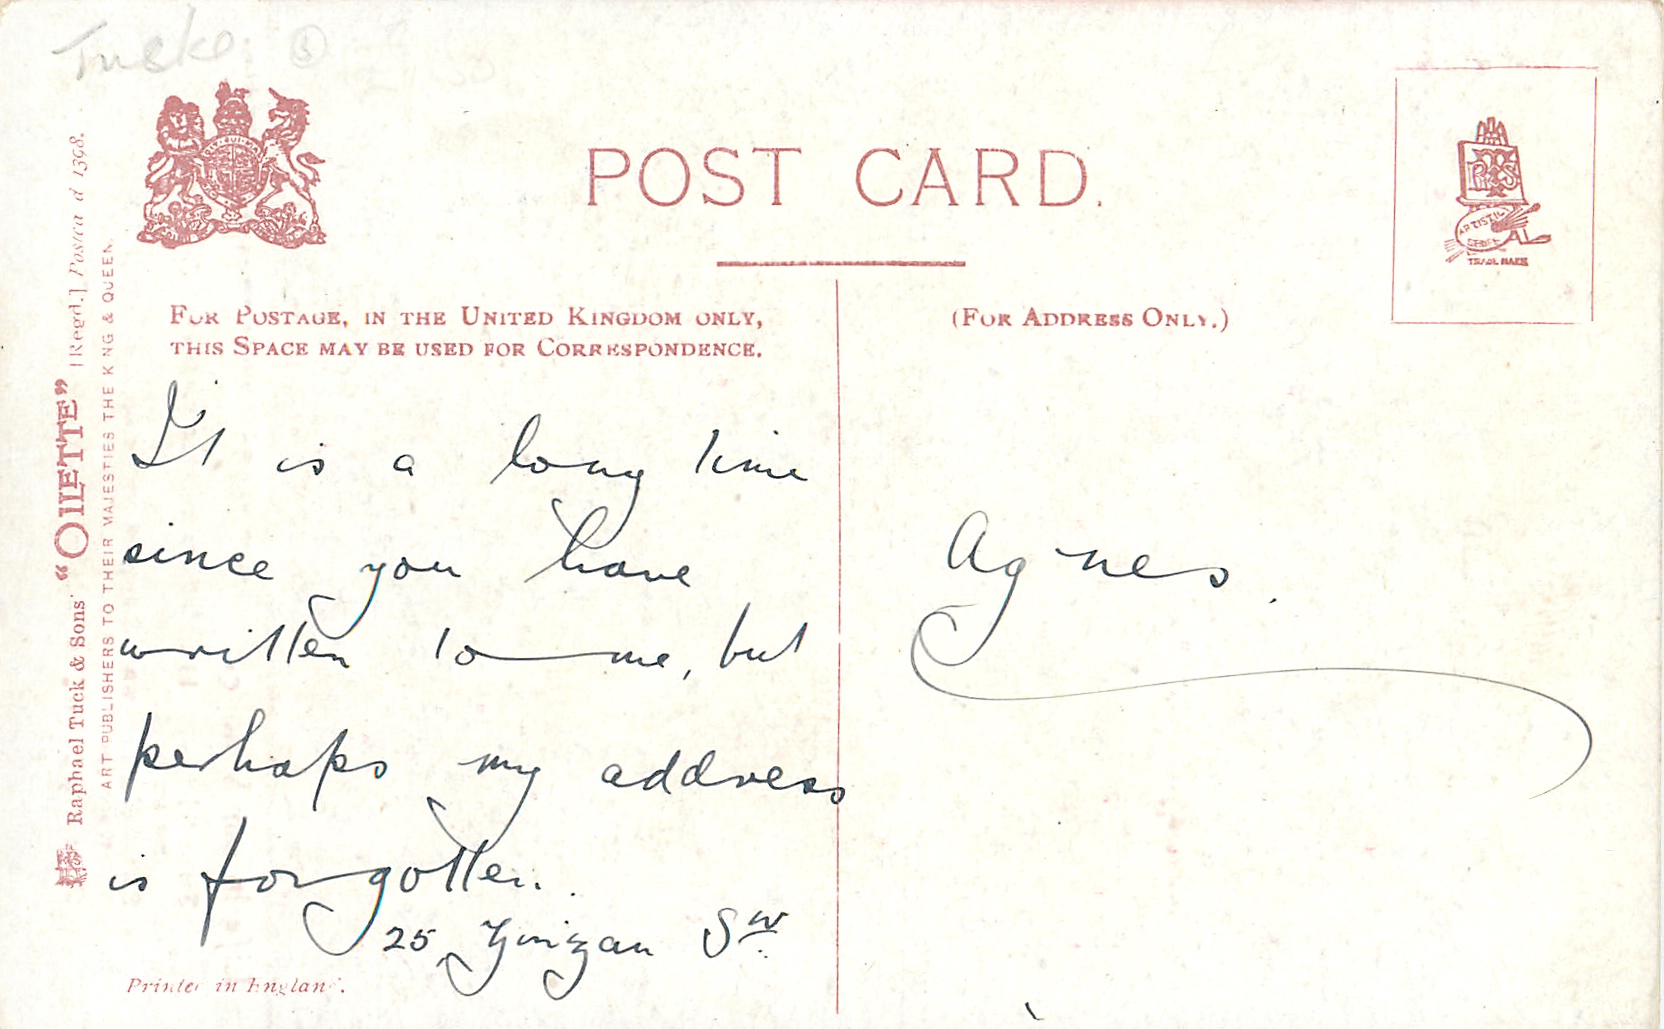 Tucks 5
POST CARD.
FOR POSTAGE, IN THE UNITED KINGDOM ONLY,
THIS SPACE MAY BE USED FOR CORRESPONDENCE.
(FOR ADDRESS ONLY.)
ARTISTIC
TRADE MARK
Raphael Tuck & Sons' “OILETTE” [Regd.] Postcard 1398.
ART PUBLISHERS TO THEIR MAJESTIES THE KING & QUEEN.
It is a long time
since you have
written to me, but
perhaps my address
is forgotten.
25
Agnes.
Printed in England.